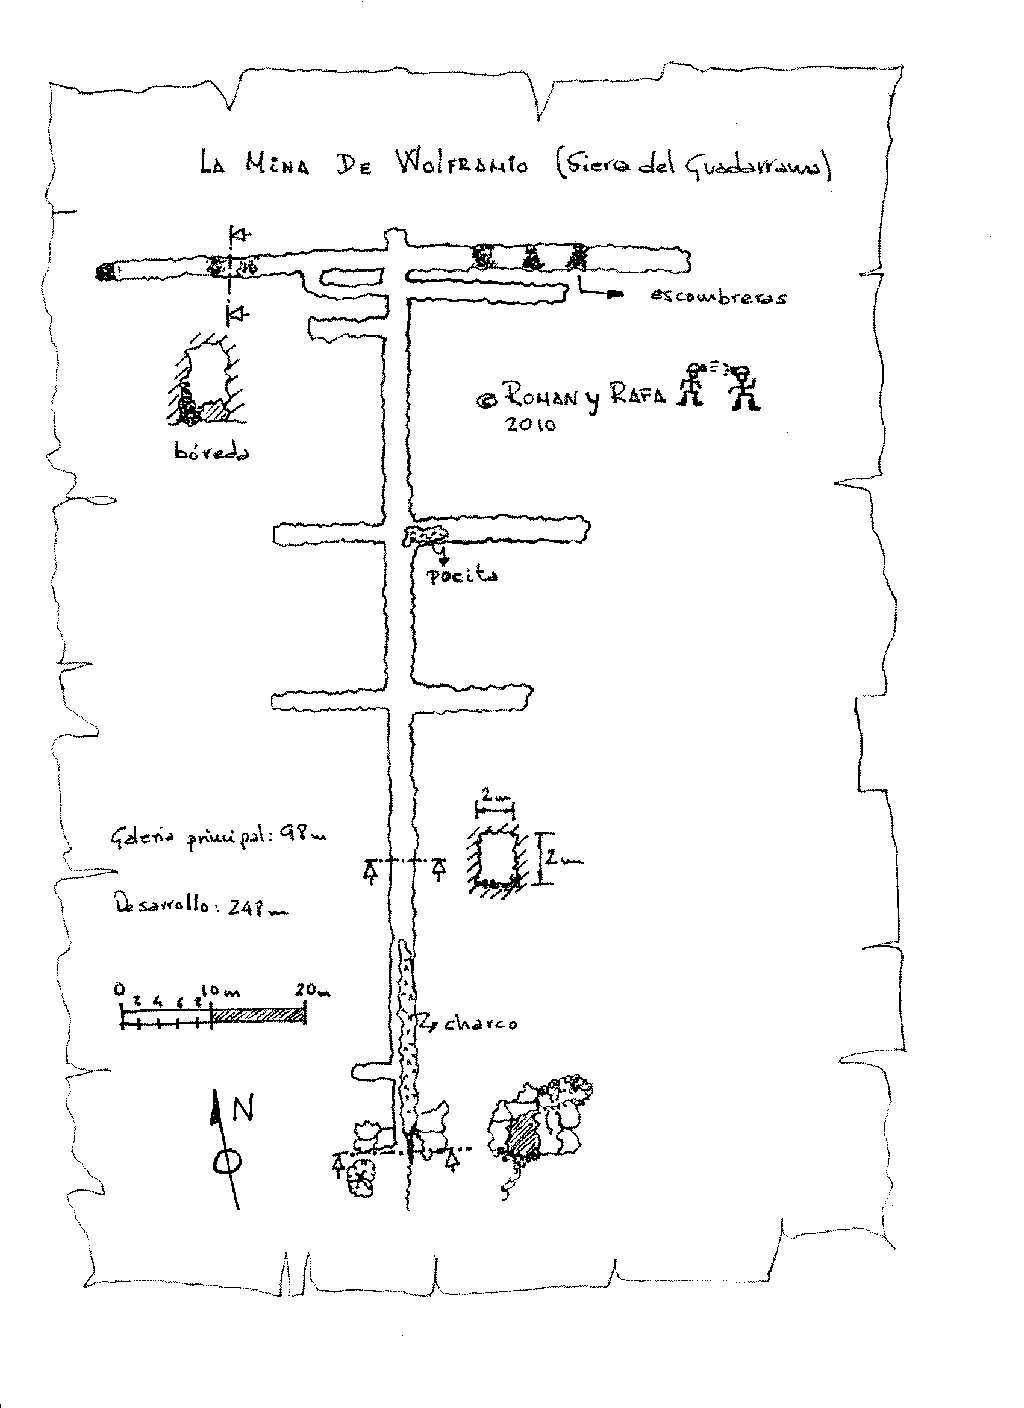 LA MINA DE WOLFRAMIO (Siera del Guadarrama)
escombreras
© ROMAN y RAFA
2010
bóveda
pocita
2m
2m
Galeria principal: 98m
Desarrollo: 248m
0 2 4 6 8 10m 20m
charco
N